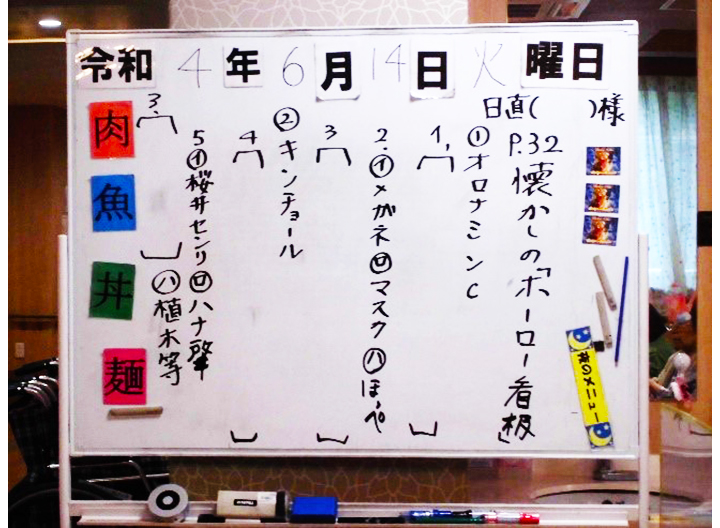 令和 4 年 6 月 14 日 火 曜日
日直(　　)様
P.32 懐かしの「ホーロー看板」
① オロナミンC
1.
2. イ メガネ ロ マスク ハ ほっぺ
3
② キンチョール
4
5 イ 桜井センリ ロ ハナ肇
ハ 植木等
3.
肉
魚
丼
麺
夜のメニュー